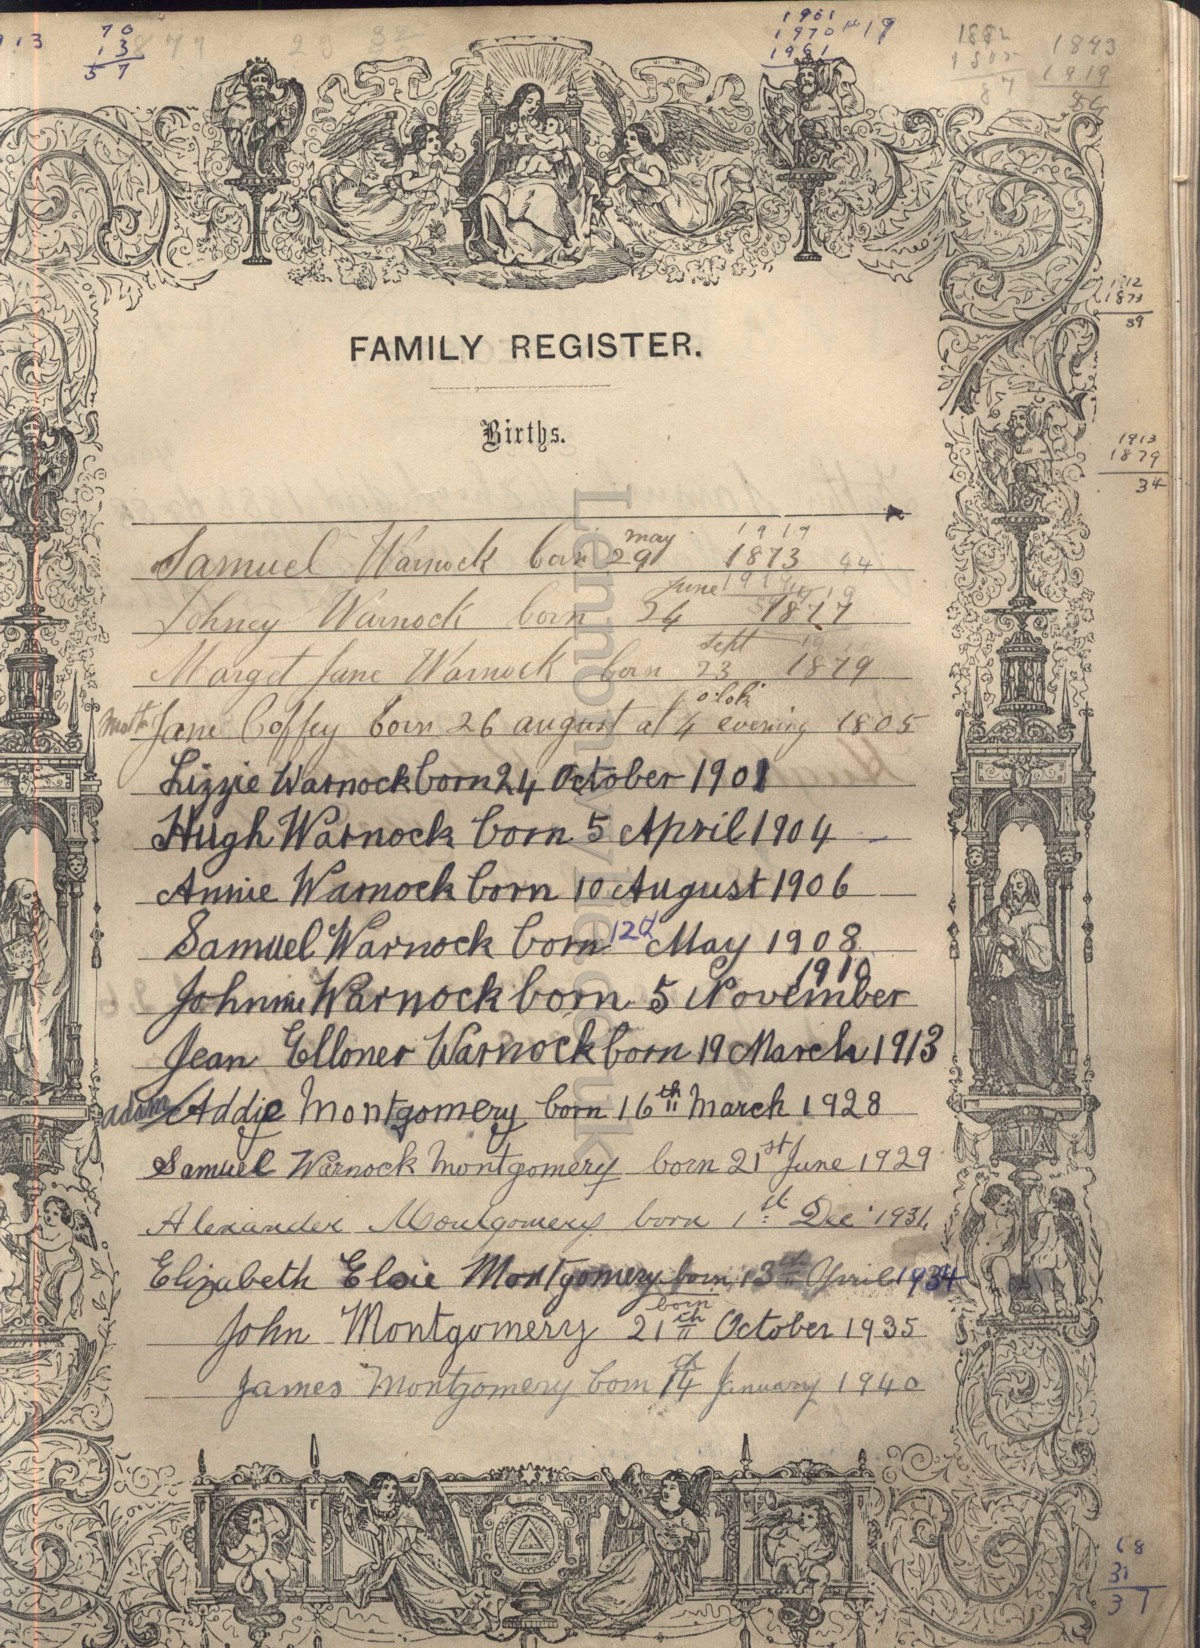 913
70
13
57
1877
23
1901
1970
1961
19
1882
87
1893
1919
86
FAMILY REGISTER.
1912
1873
39
Births.
1913
1879
34
1917
Samuel Warnock born 29 may 1873 44
Johney Warnock born 24 june 1877
Marget Jane Warnock born 23 Sept 1879
Moth Jane Coffey born 26 august at 4 o'clok evening 1805
Lizzie Warnock born 24 October 1901
Hugh Warnock born 5 April 1904
Annie Warnock born 10 August 1906
Samuel Warnock born 12d May 1908
Johnnie Warnock born 5 November 1910
Jean Elloner Warnock born 19 March 1913
adam Addie Montgomery born 16th March 1928
Samuel Warnock Montgomery born 21st June 1929
Alexander Montgomery born 1st Dec 1931
Elizabeth Elsie Montgomery born 13th April 1934
John Montgomery born 21th October 1935
James Montgomery born 14th January 1940
68
31
37
Lennonwylie.co.uk